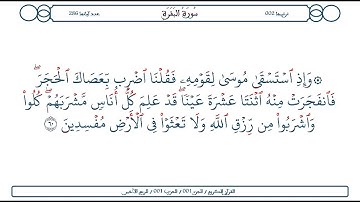 ترتيبها 002
سُورَةُ البَقَرَةِ
عدد آياتها 286
۞ وَإِذِ ٱسْتَسْقَىٰ مُوسَىٰ لِقَوْمِهِۦ فَقُلْنَا ٱضْرِب بِّعَصَاكَ ٱلْحَجَرَۖ
فَٱنفَجَرَتْ مِنْهُ ٱثْنَتَا عَشْرَةَ عَيْنٗاۖ قَدْ عَلِمَ كُلُّ أُنَاسٖ مَّشْرَبَهُمْۖ كُلُوا۟
وَٱشْرَبُوا۟ مِن رِّزْقِ ٱللَّهِ وَلَا تَعْثَوْا۟ فِى ٱلْأَرْضِ مُفْسِدِينَ ٦٠
القرآن الكريم / الجزء 001 / الحزب 001 / الربع الأخير